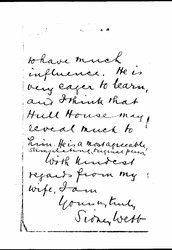 to have much
influence. He is
very eager to learn,
and I think that
Hull House may
reveal much to
him. He is a most agreeable,
stimulating, original person
With kindest
regards from my
wife, I am
Yours truly,
Sidney Webb